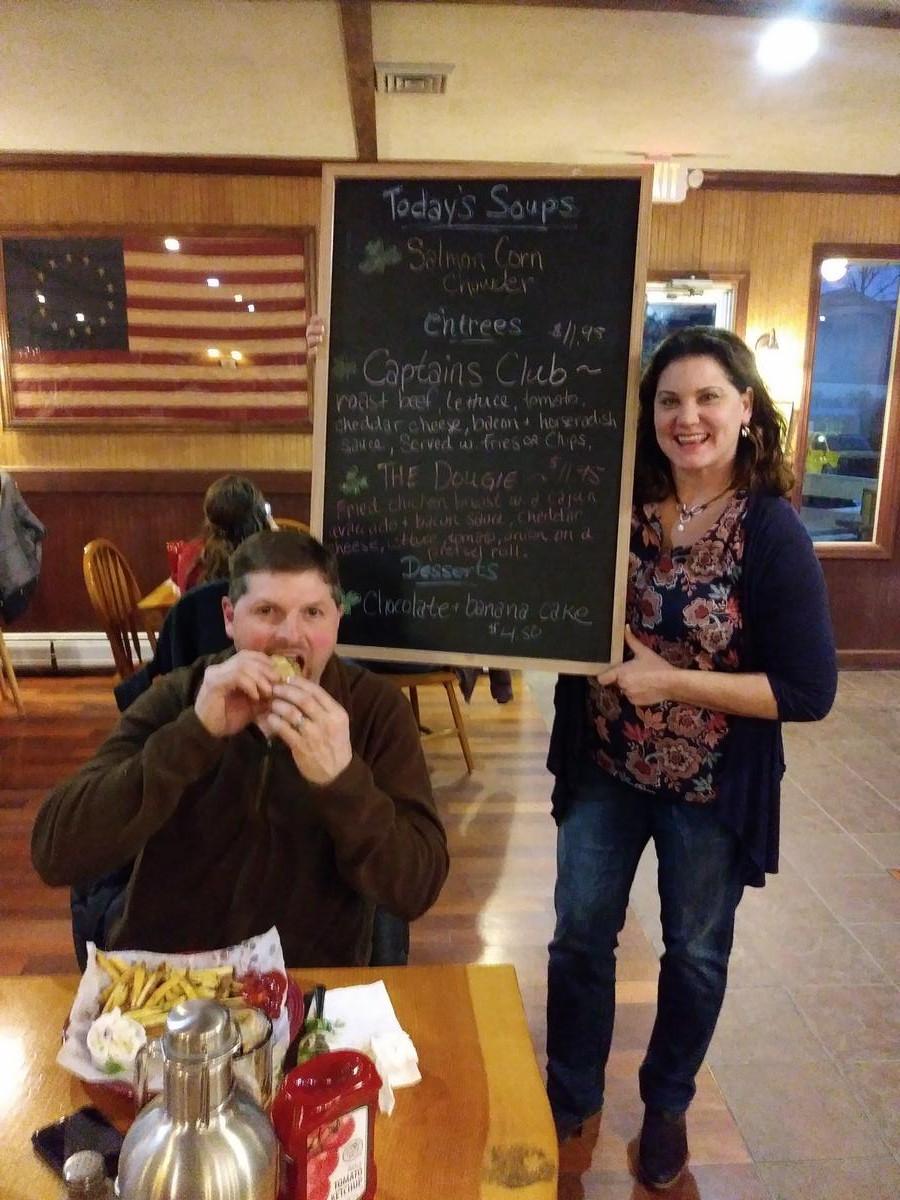 Today's Soups
Salmon Corn
Chowder
Entrees $11.95
Captains Club ~
roast beef, lettuce, tomato,
cheddar cheese, bacon + horseradish
sauce, Served w. fries or Chips.
THE DOUGIE ~ $11.95
Fried chicken breast w a cajun
avocado + bacon sauce, cheddar
cheese, lettuce, tomato, onion on a
pretzel roll.
Desserts
Chocolate + banana cake
$4.50
TOMATO
KETCHUP